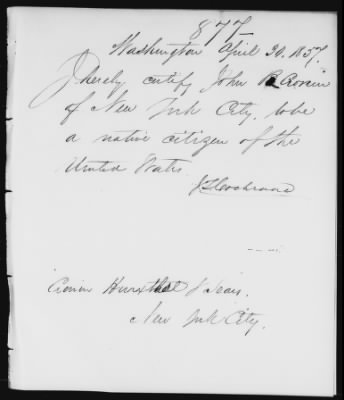 877
Washington April 30. 1857.
I hereby certify John B Cronin
of New York City, to be
a native citizen of the
United States.
J Cochrane
Cronin Hurxthal & Sears.
New York City.